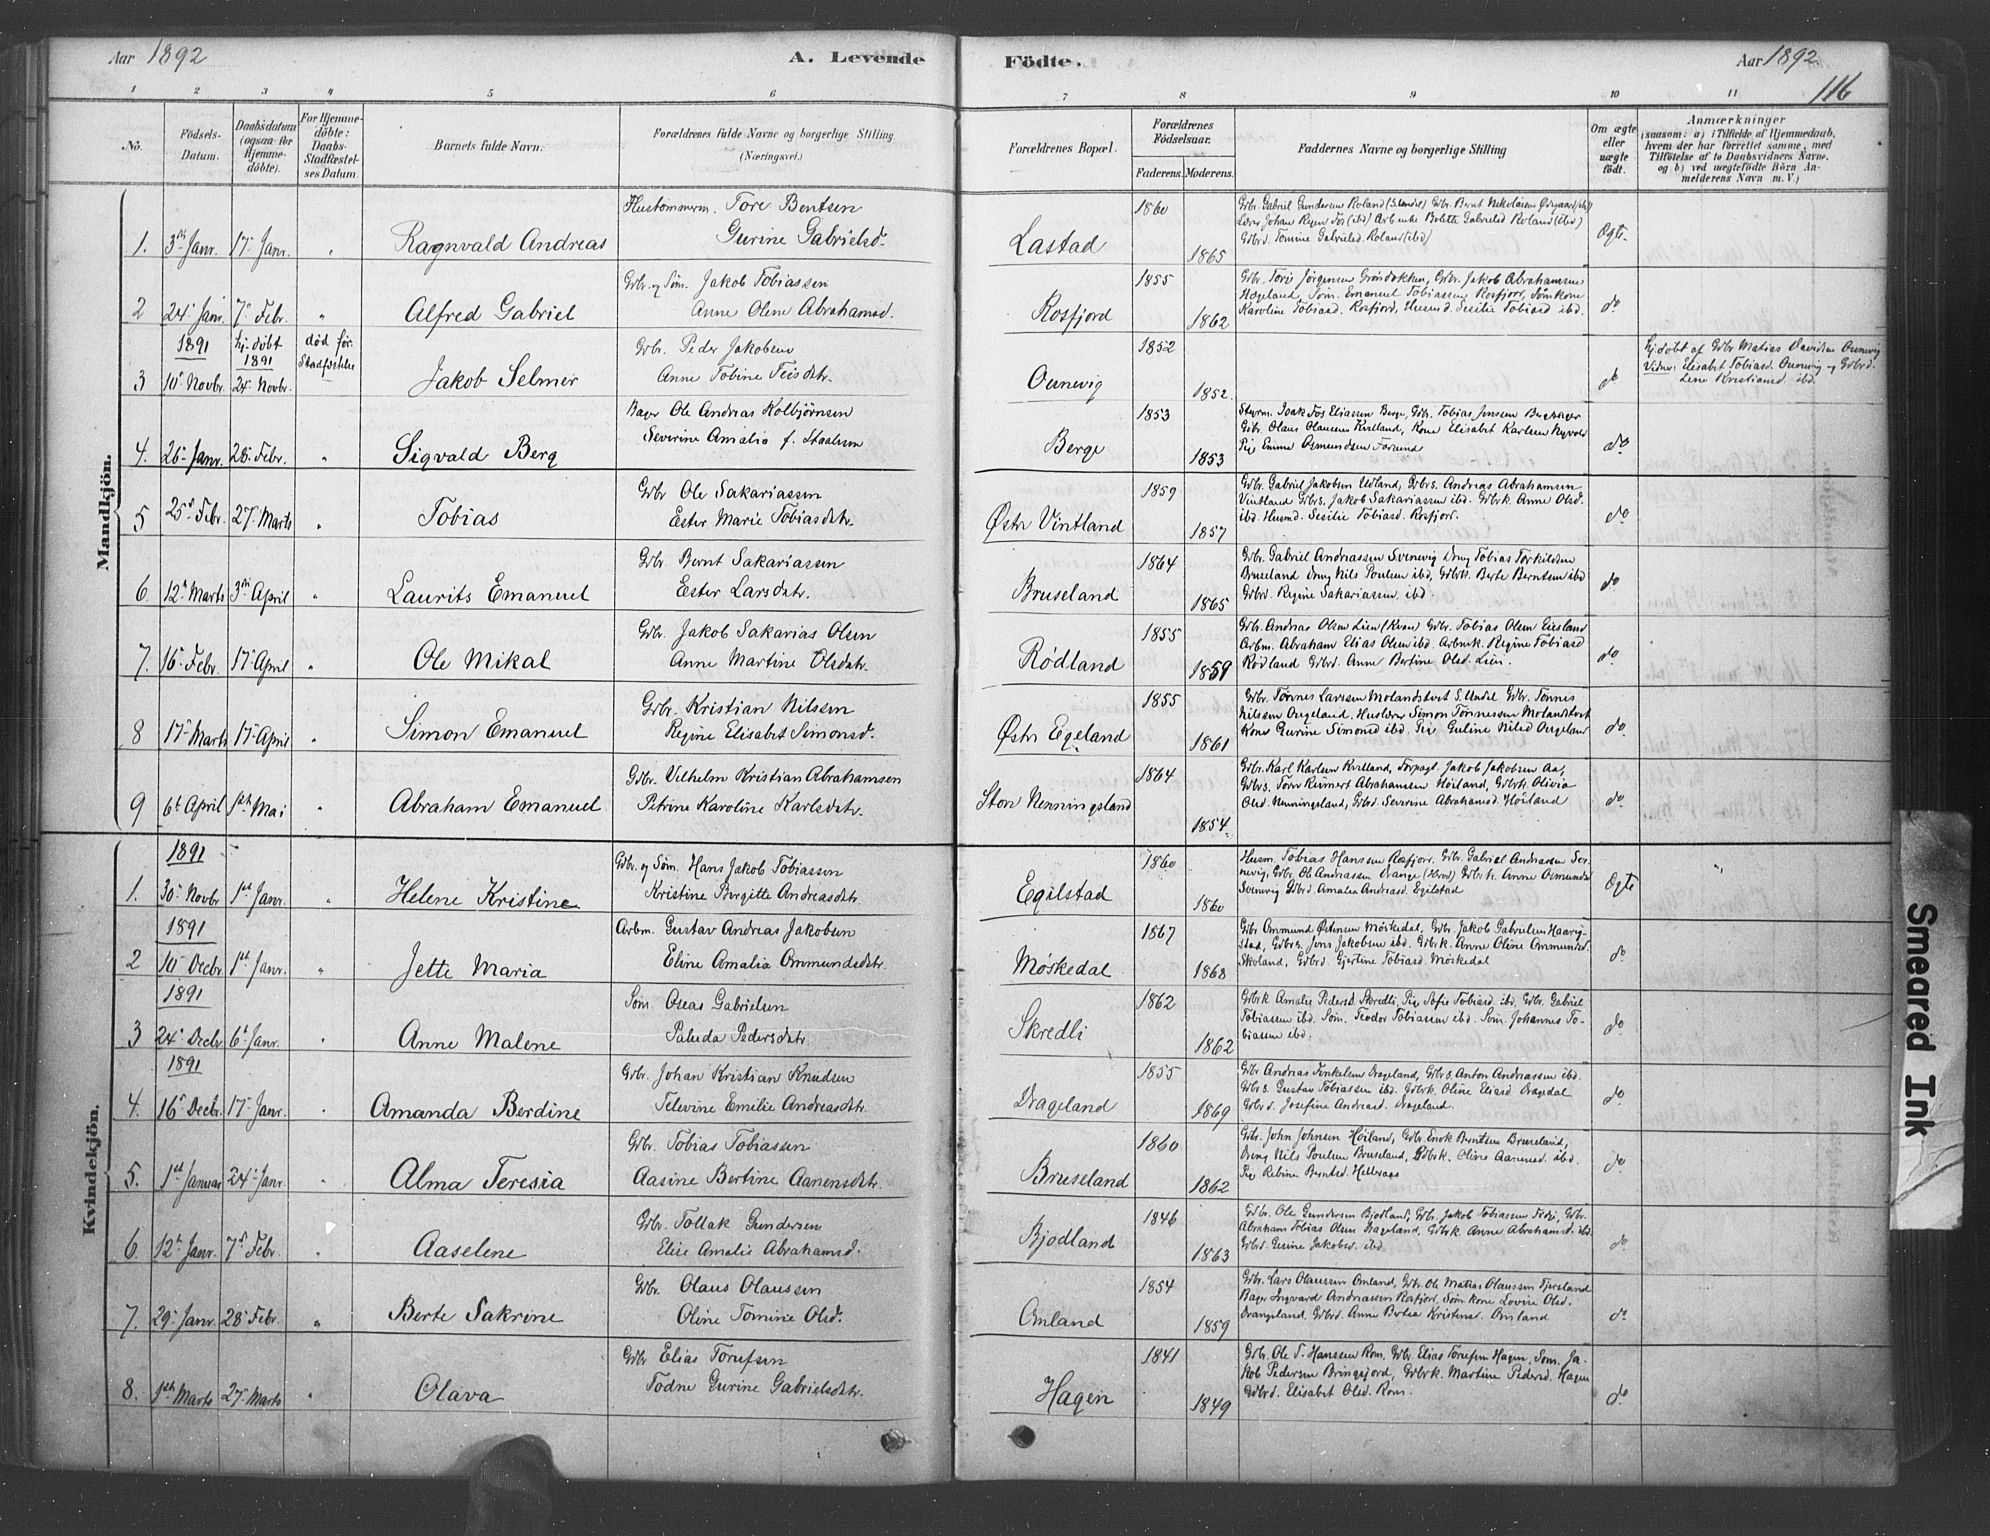 Aar 1892
A. Levende
Födte.
Aar 1892
116
1 2 3 4 5 6 7 8 9 10 11
No.
Födsels-Datum.
Daabsdatum (ogsaa for Hjemme-döbte).
For Hjemme-döbte: Daabs-Stadfæstel-ses Datum.
Barnets fulde Navn.
Forældrenes fulde Navne og borgerlige Stilling (Næringsvei.)
Forældrenes Bopæl.
Forældrenes Födselsaar.
Faderens. Moderens.
Faddernes Navne og borgerlige Stilling
Om ægte eller uægte födt.
Anmærkninger
(saasom: a) i Tilfælde af Hjemmedaab, hvem der har forrettet samme, med Tilföielse af to Daabsvidners Navne, og b) ved uægtefödte Börn An-melderens Navn m. V.)
Mandkjön.
1. 3die Janr. 17. Janr. " Ragnvald Andreas
Hustømmerm. Tore Bentsen
Gurine Gabrielsd.
Lastad 1860 1865
Gbr. Gabriel Gundersen Roland (S. Undal) Gbr. Bernt Nikolaisen
Gbrd. Tomine Gabrielsd. Roland (ibd)
Ægte.
2 24. Janr. 7. Febr. " Alfred Gabriel
Gbr. og Søm. Jakob Tobiassen
Anne Olene Abrahamsd.
Rosfjord 1855 1862
Gbr. Tore Jørgensen Grøndokken, Gbr. Jakob Abrahamsen
Høgeland, Søm. Emanuel Tobiassen Rosfjord, Sømkone
Karoline Tobiasd. Rosfjord, Husmd. Sesilie Tobiasd ibd.
do
3 1891 10. Novbr. hj.døbt 1891 24. Novbr. død før Stadfæstelse Jakob Selmer
Gbr. Peder Jakobsen
Anne Tobine Teisdtr.
Ounevig 1852 1852.
do
hj.døbt af Gbr Matias Davidsen Ounevig
Vidner: Elisabet Tobiasd. Ounevig og Gbrd.
Lene Kristiansd ibd.
4. 26. Janr. 28. Febr. " Sigvald Berg
Bager Ole Andreas Kolbjørnsen
Severine Amalia f. Staalesen
Berge 1853 1853
Styrm. Isak Fos Eliassen Berge, Gbr. Tobias Jensen
Gbr. Olaus Olaussen Kvilland, Kone Elisabet Karlsen
Pig Emma Osmundsen Farsund
do
5 25. Febr. 27. Marts " Tobias
Gbr Ole Sakariassen
Ester Marie Tobiasdtr.
Østr Vintland 1859 1857
Gbr. Gabriel Jakobsen Udland, Gbrs. Andreas Abrahamsen
Vintland Gbrs. Jakob Sakariassen ibd. Gbrk. Anne Olsd.
ibd. Husmd. Sesilie Tobiasd. Rosfjord.
do
6. 12. Marts 3die April " Laurits Emanuel
Gbr. Bernt Sakariassen
Ester Larsdtr.
Bruseland 1864 1865
Gbr. Gabriel Andreassen Svenevig Dreng Tobias Torkildsen
Bruseland Dreng Nils Poulsen ibd, Gbrk. Berte Berntsen ibd
Gbrd. Regine Sakariassen ibd.
do
7. 16. Febr. 17. April " Ole Mikal
Gbr. Jakob Sakarias Olsen
Anne Martine Olsdtr.
Rødland 1855 1859
Gbr. Andreas Olsen Lien (Kvas) Gbr. Tobias Olsen
Arbm. Abraham Elias Olsen ibd. Arbmk. Regine Tobiasd
Rødland Gbrd. Anne Bertine Olsd. Lien.
do.
8 17. Marts 17. April " Simon Emanuel
Gbr. Kristian Nilssen
Regine Elisabet Simonsd.
Østr Egeland 1855 1861
Gbr. Tønnes Larssen Molandstvet S. Undal Gbr. Tønnes
Nilssen Øigeland. Huslærer Simon Tønnessen Molandstvet
Kone Gurine Simonsd ibd. Pig Guline Nilsd
do
9 6t April 1ste Mai " Abraham Emanuel
Gbr. Vilhelm Kristian Abrahamsen
Petrine Karoline Karlsdtr.
Store Nenningsland 1864 1854.
Gbr. Karl Karlsen Kvilland, Forpagt. Jakob Jakobsen Aa,
Gbrs. Tore Reinert Abrahamsen Høiland, Gbrk Olivia
Olsd. Nenningsland, Gbrd. Severine Abrahamsd. Høiland
do
Kvindekjön.
1. 1891 30. Novbr 1ste Janr. " Helene Kristine
Gbr. og Søm. Hans Jakob Tobiassen
Kristine Birgitte Andreasdtr.
Egilstad 1860 1860
Husm. Tobias Hanssen Rosfjord. Gbr. Gabriel Andreassen Sve-
nevig, Gbr. Ole Andreassen Drange (Herad) Gbrk. Anne Osmundsd
Svenevig Gbrd. Amalia Andreasd. Egilstad
Ægte
"
2 1891 10. Decbr 1ste Janr. " Jette Maria
Arbm. Gustav Andreas Jakobsen
Eline Amalia Ommundsdtr.
Møskedal 1867 1868
Gbr Ommund Østensen Møskedal, Gbr. Jakob Gabrielsen Haavig-
stad, Gbrs. Jens Jakobsen ibd. Gbrk. Anne Oline Ommundsd.
Skoland, Gbrd. Gjertine Tobiasd. Møskedal
do
3 1891 24. Decbr 6t Janr. " Anne Malene
Søm. Oseas Gabrielsen
Paluda Pedersdtr.
Skredli 1862 1862
Gbrk Amalie Pedersd. Skredli, Pig Sofie Tobiasd. ibd, Gbr. Gabriel
Tobiassen ibd. Søm. Teodor Tobiassen ibd. Søm. Johannes To-
biassen ibd.
do
4. 1891 16. Decbr. 17. Janr. " Amanda Berdine
Gbr. Johan Kristian Knudsen
Televine Emilie Andreasdtr.
Drageland 1855 1869
Gbr Andreas Terkelsen Drageland, Gbrs. Anton Andreassen ibd.
Gbrs. Gustav Tobiassen ibd. Gbrk. Oline Eliasd. Dragedal
Gbrd. Josefine Andreasd. Drageland.
do
5. 1ste Januar 24. Janr. " Alma Teresia
Gbr. Tobias Tobiassen
Aasine Bertine Aanensdtr.
Bruseland 1860 1862
Gbr. John Johnsen Høiland, Gbr. Enok Berntsen Bruseland,
Dreng Nils Poulsen Bruseland, Gbrk. Oline Aanensd. ibd.
Pig Rebine Berntsd.
do
6. 12. Janr. 7. Febr. " Aaselene
Gbr. Tollak Gundersen
Elise Amalie Abrahamsd.
Bjodland 1846 1863
Gbr. Ole Gundersen Bjodland, Gbr. Jakob Tobiassen Fidje, Gbr.
Abraham Tobias Olsen Drageland, Gbrk. Anne Abrahamsd. ibd.
Gbrd. Gurine Jakobsd. ibd.
do
7. 29. Janr. 28. Febr. " Berte Sakrine
Gbr. Olaus Olaussen
Oline Tomine Olsd.
Omland 1854 1859
Gbr. Lars Olaussen Omland, Gbr. Ole Matias Olaussen
Bager Ingvard Andreassen Rosfjord, Sømkone Lovise Olsd.
Drangeland. Gbrd. Anne Bertea Kristensd. Omland
do
8. 1ste Marts 27. Marts " Olava
Gbr Elias Torufsen
Todne Gurine Gabrielsdtr.
Hagen 1841 1849
Gbr. Ole T. Hanssen Rom, Gbr. Elias Torufsen Hagen, Søm. Ja-
kob Pedersen Bringsjord, Gbrk. Martine Pedersd. Hagen
Gbrd. Elisabet Olsd. Rom.
do
Smeared Ink